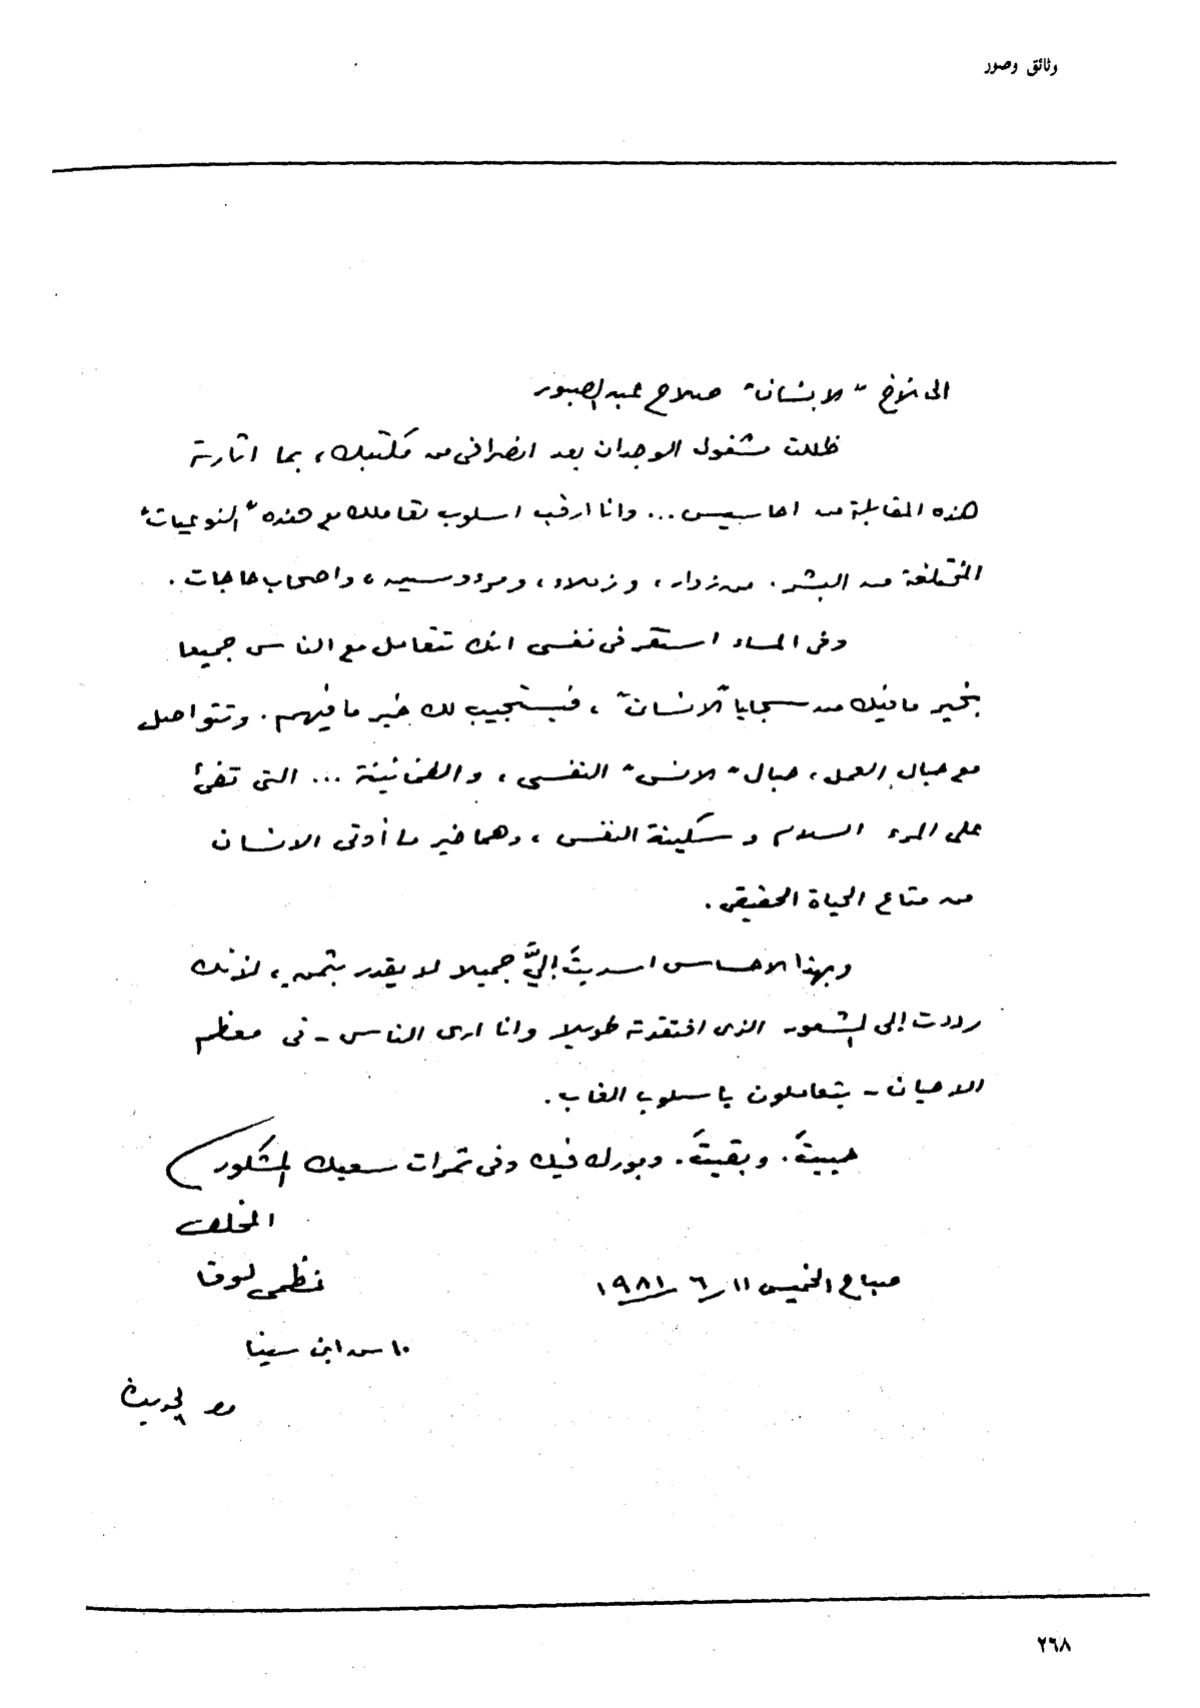 وثائق وصور
الى الاخ "الانسان" صلاح عبد الصبور
ظللت مشغول الوجدان بعد انصرافى من مكتبك، بما اثارته
هذه المقابلة من احاسيس... وانا ارقب اسلوب تعاملك مع هذه "النوعيات"
المختلفة من البشر. من زوار، وزملاء، ومرءوسين، واصحاب حاجات.
وفى المساء استقر فى نفسى انك تتعامل مع الناس جميعا
بخير ما فيك من سجايا "الانسان"، فيستجيب لك خير ما فيهم. وتتواصل
مع حبال العمل، حبال "الانس" النفسى، والطمأنينة... التى تفئ
على المرء السلام وسكينة النفس، وهما خير ما أوتى الانسان
من متاع الحياة الحقيقى.
وبهذا الاحساس اسديتَ إليَّ جميلا لا يقدر بثمن، لأنك
رددت إلى الشعور الذى افتقدته طويلا وانا ارى الناس - فى معظم
الاحيان - يتعاملون باسلوب الغاب.
حييتَ. وبقيتَ. وبورك فيك وفى ثمرات سعيك المشكور
المخلص
نظمى لوقا
صباح الخميس ١١/٦/١٩٨١
١٠ ش ابن سينا
مصر الجديدة
٢٦٨